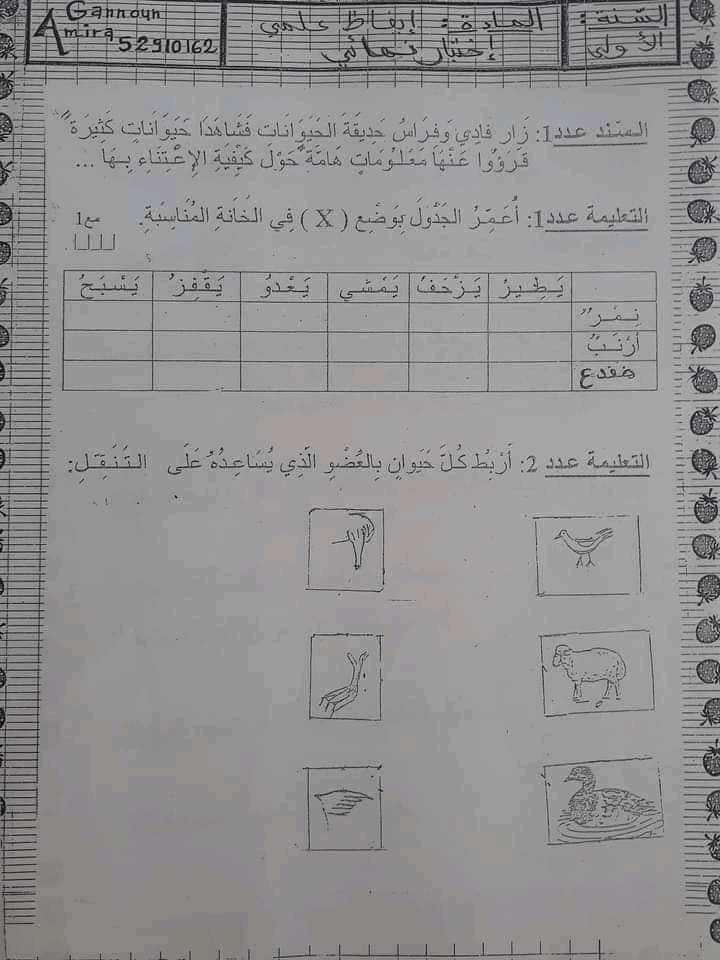 السّنة : المادة : إيقاظ علمي Gannoun
الأولى إختبار نهائي Amira 52910162
السّند عدد1: زَار فَادِي وَفِرَاسُ حَدِيقَةَ الحَيَوَانَات فَشَاهَدَا حَيَوَانَاتٍ كَثِيرَةً
قَرَؤُوا عَنْهَا مَعَلُومَاتٍ هَامَّةً حَوْلَ كَيْفِيَةِ الإِعْتِنَاءِ بِهَا ...
التعليمة عدد1: أُعَمِّرُ الجَدْوَلَ بِوَضْعِ ( X ) فِي الخَانَةِ المُنَاسِبَةِ. مع1
يَطِيرُ يَزْحَفُ يَمْشِي يَعْدُو يَقْفِزُ يَسْبَحُ
نِمْرٌ
أَرْنَبٌ
ضفدع
التعليمة عدد 2: أَرْبُط كُلَّ حَيَوانٍ بِالعُضْوِ الَّذِي يُسَاعِدُهُ عَلَى التَنَقِلِ: